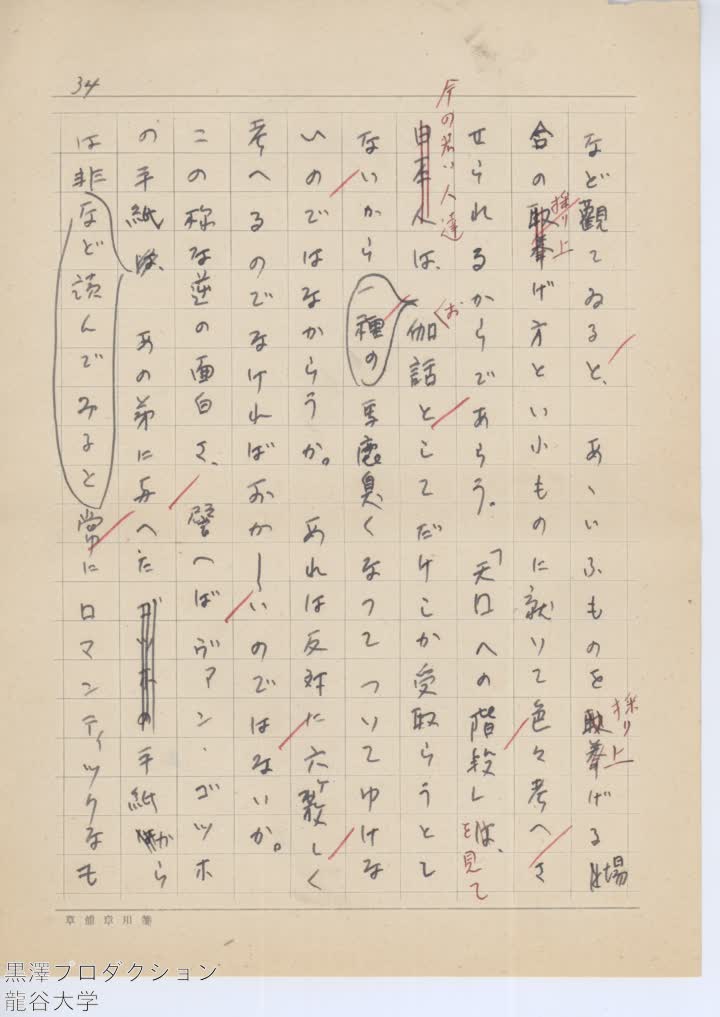 34
など觀てゐると、あゝいふものを取擧げる場
採り上
合の取擧げ方といふものに就いて色々考へさ
採り上
せられるからであらう。「天国への階段」は、
を見て
日本人は、お伽話としてだけしか受取らうとし
今の若い人達
ないから一種の馬鹿臭くなつてついてゆけな
いのではなからうか。あれは反対に六ヶ敷しく
考へるのでなければおかしいのではないか。
この称な逆の面白さ、譬へばヴァン・ゴッホ
の手紙は、あの弟に与へたゴッホの手紙から
は非など読んでみると常にロマンティックなも
草稿章川箋
黒澤プロダクション
龍谷大学